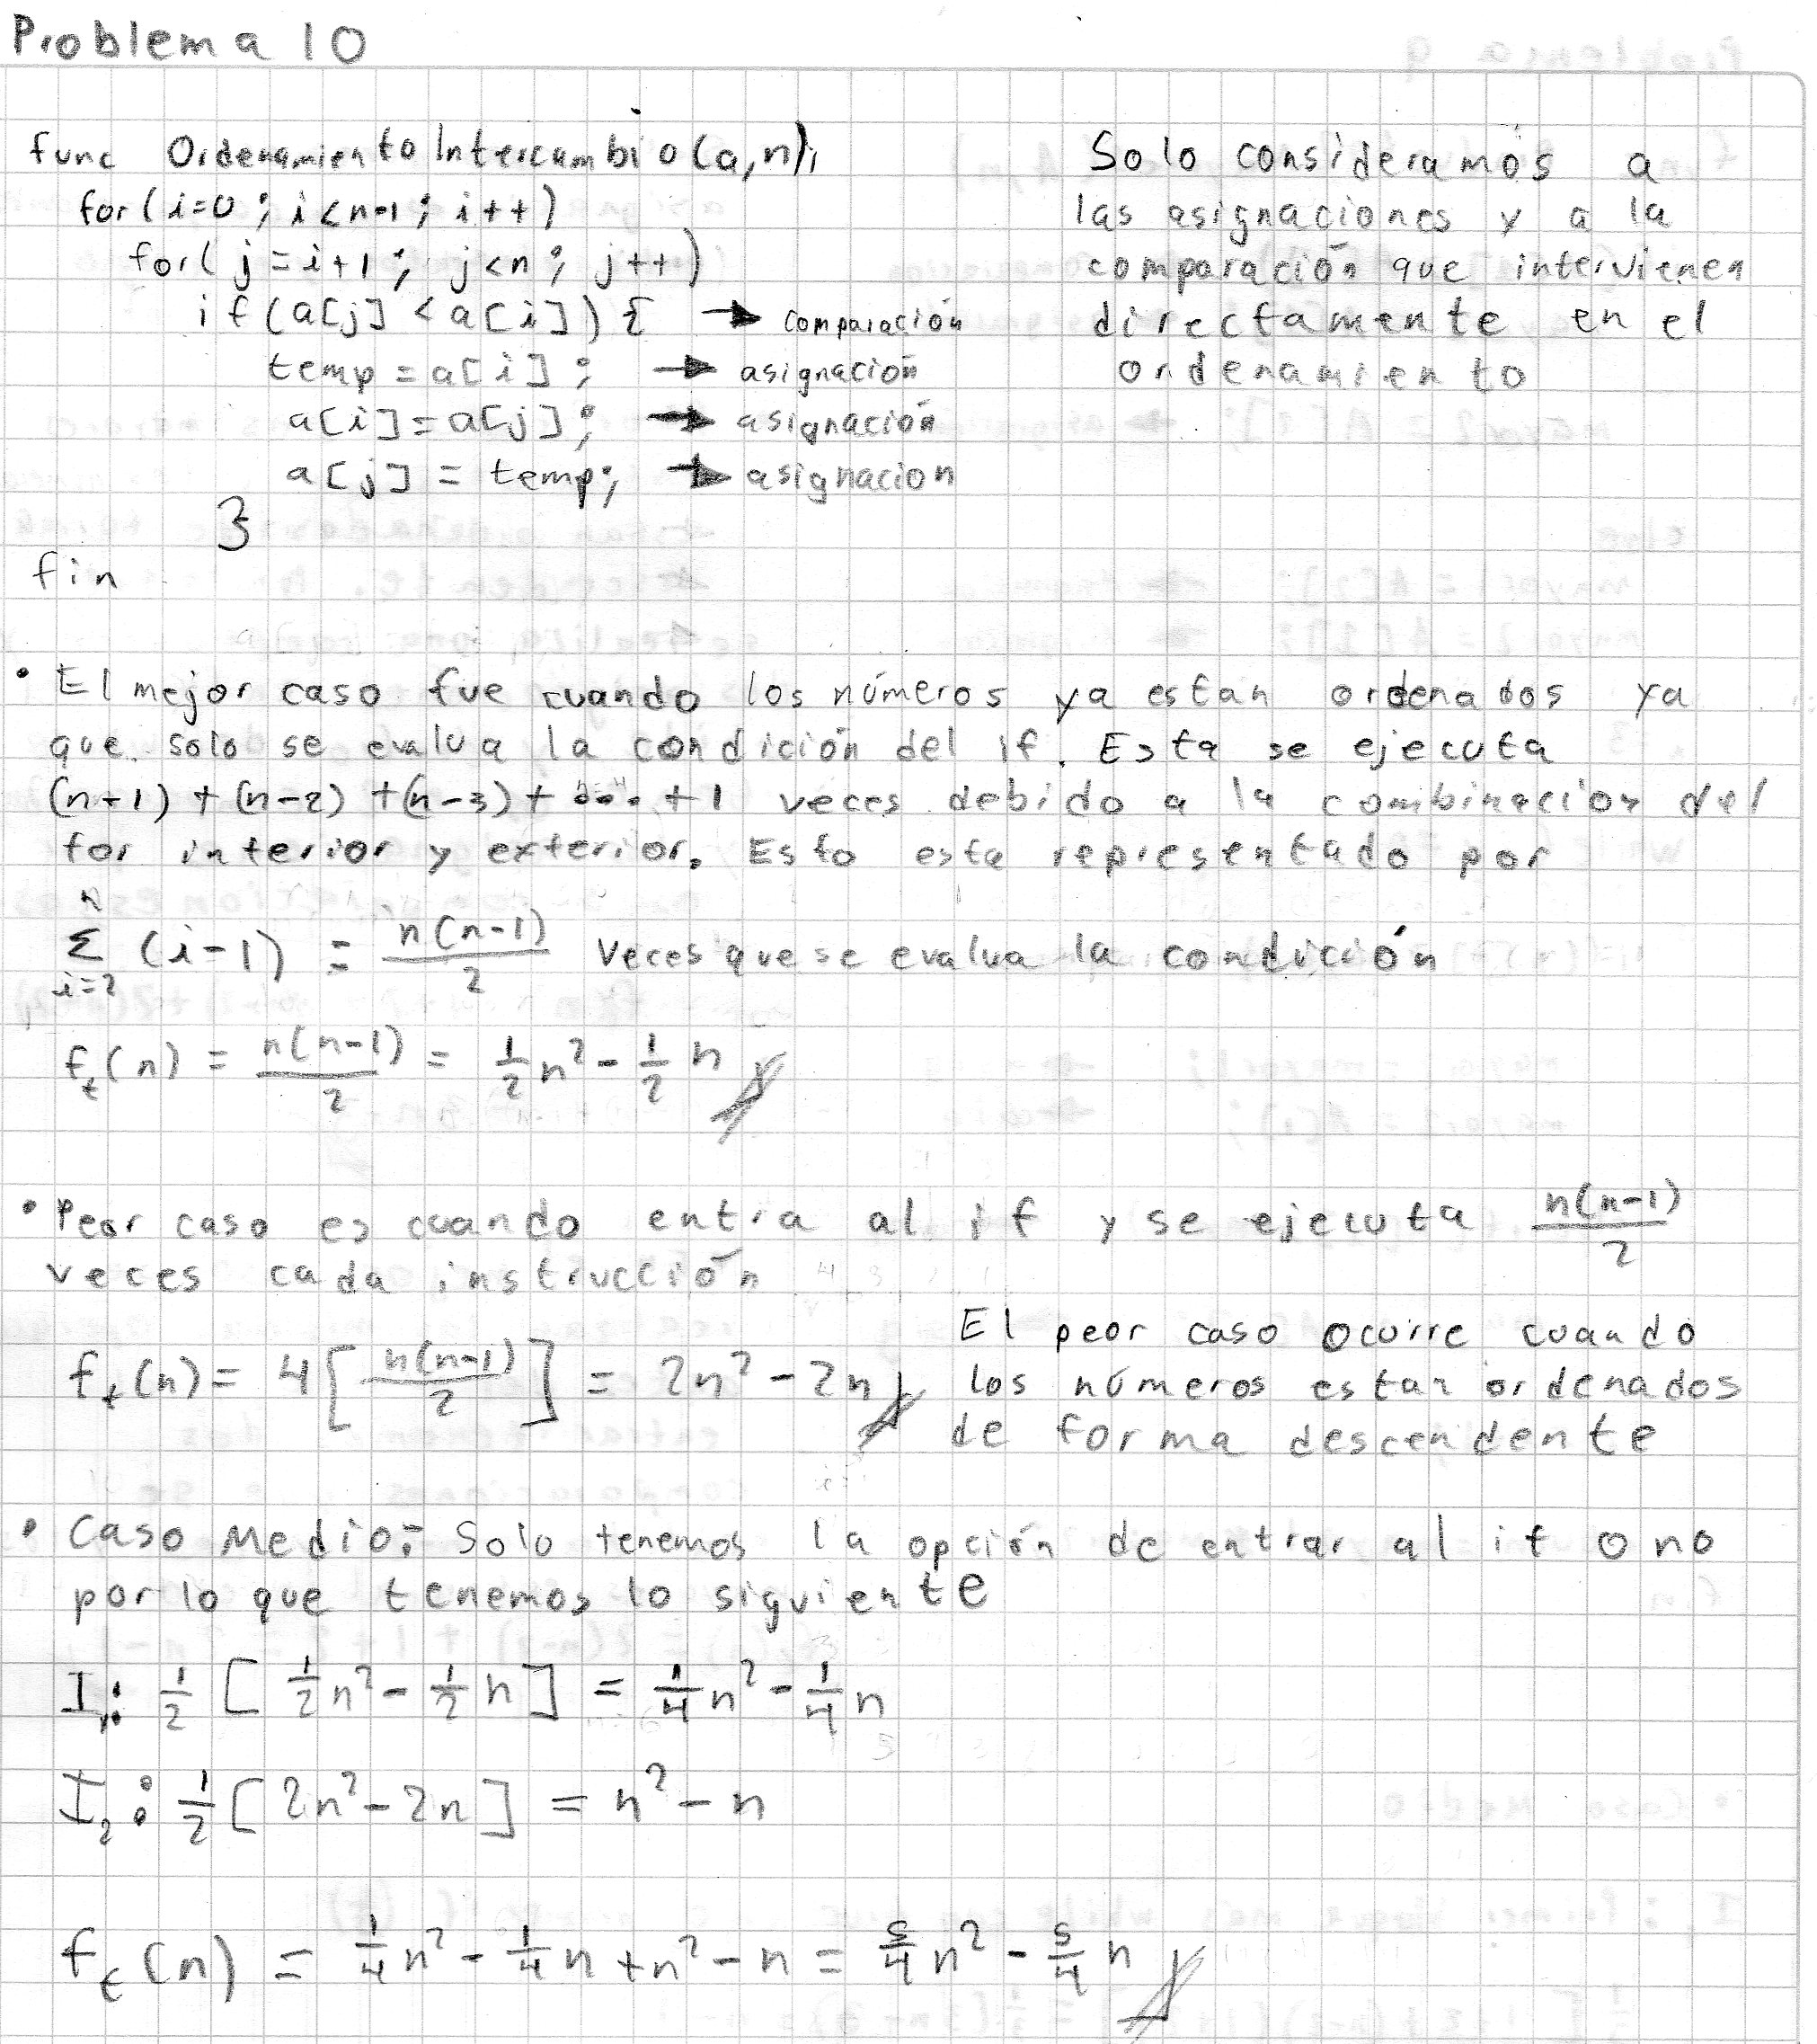 Problema 10
func OrdenamientoIntercambio(a,n);
for(i=0; i<n-1; i++)
for(j=i+1; j<n; j++)
if(a[j]<a[i]){ → comparación
temp=a[i]; → asignación
a[i]=a[j]; → asignación
a[j]=temp; → asignacion
}
fin
Solo consideramos a
las asignaciones y a la
comparación que intervienen
directamente en el
ordenamiento
• El mejor caso fue cuando los números ya estan ordenados ya
que solo se evalua la condición del if. Esta se ejecuta
(n+1) + (n-2) + (n-3) + ... + 1 veces debido a la combinacion del
for interior y exterior. Esto esta representado por
∑_{i=2}^{n} (i-1) = n(n-1)/2 veces que se evalua la condición
f_t(n) = n(n-1)/2 = 1/2 n² - 1/2 n
• Peor caso es cuando entra al if y se ejecuta n(n-1)/2
veces cada instrucción
f_t(n) = 4[n(n-1)/2] = 2n² - 2n
El peor caso ocurre cuando
los números estan ordenados
de forma descendente
• Caso Medio: Solo tenemos la opción de entrar al if o no
por lo que tenemos lo siguiente
I₁: 1/2 [1/2 n² - 1/2 n] = 1/4 n² - 1/4 n
I₂: 1/2 [2n² - 2n] = n² - n
f_t(n) = 1/4 n² - 1/4 n + n² - n = 5/4 n² - 5/4 n